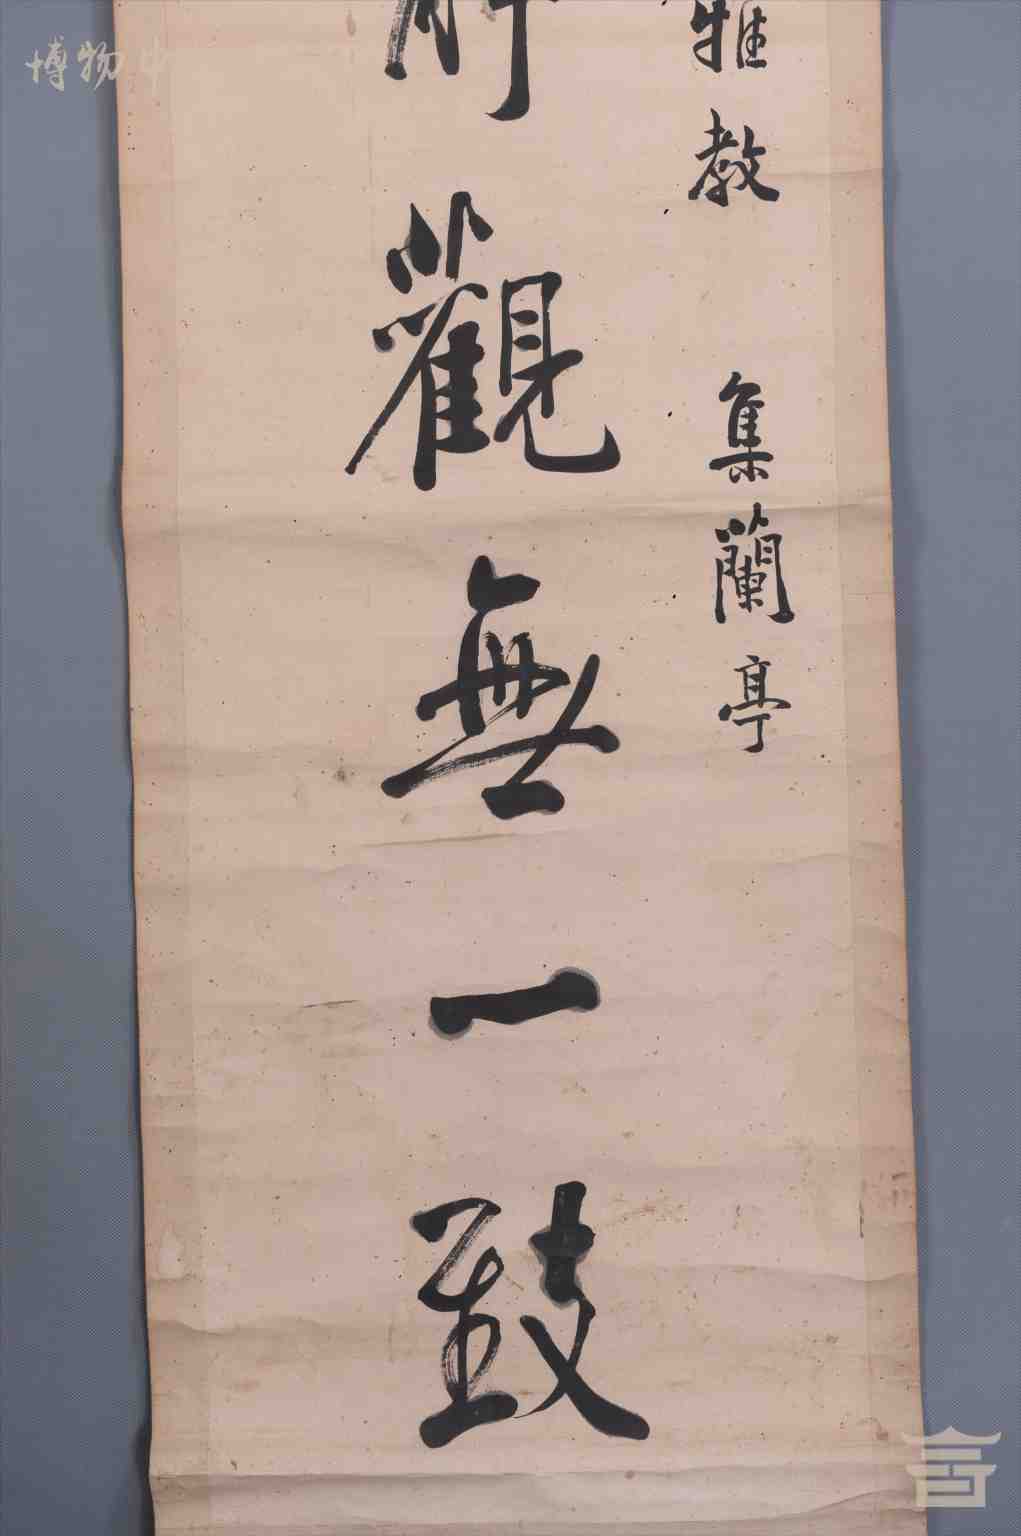 雅教
集蘭亭
觀無一致
博物中